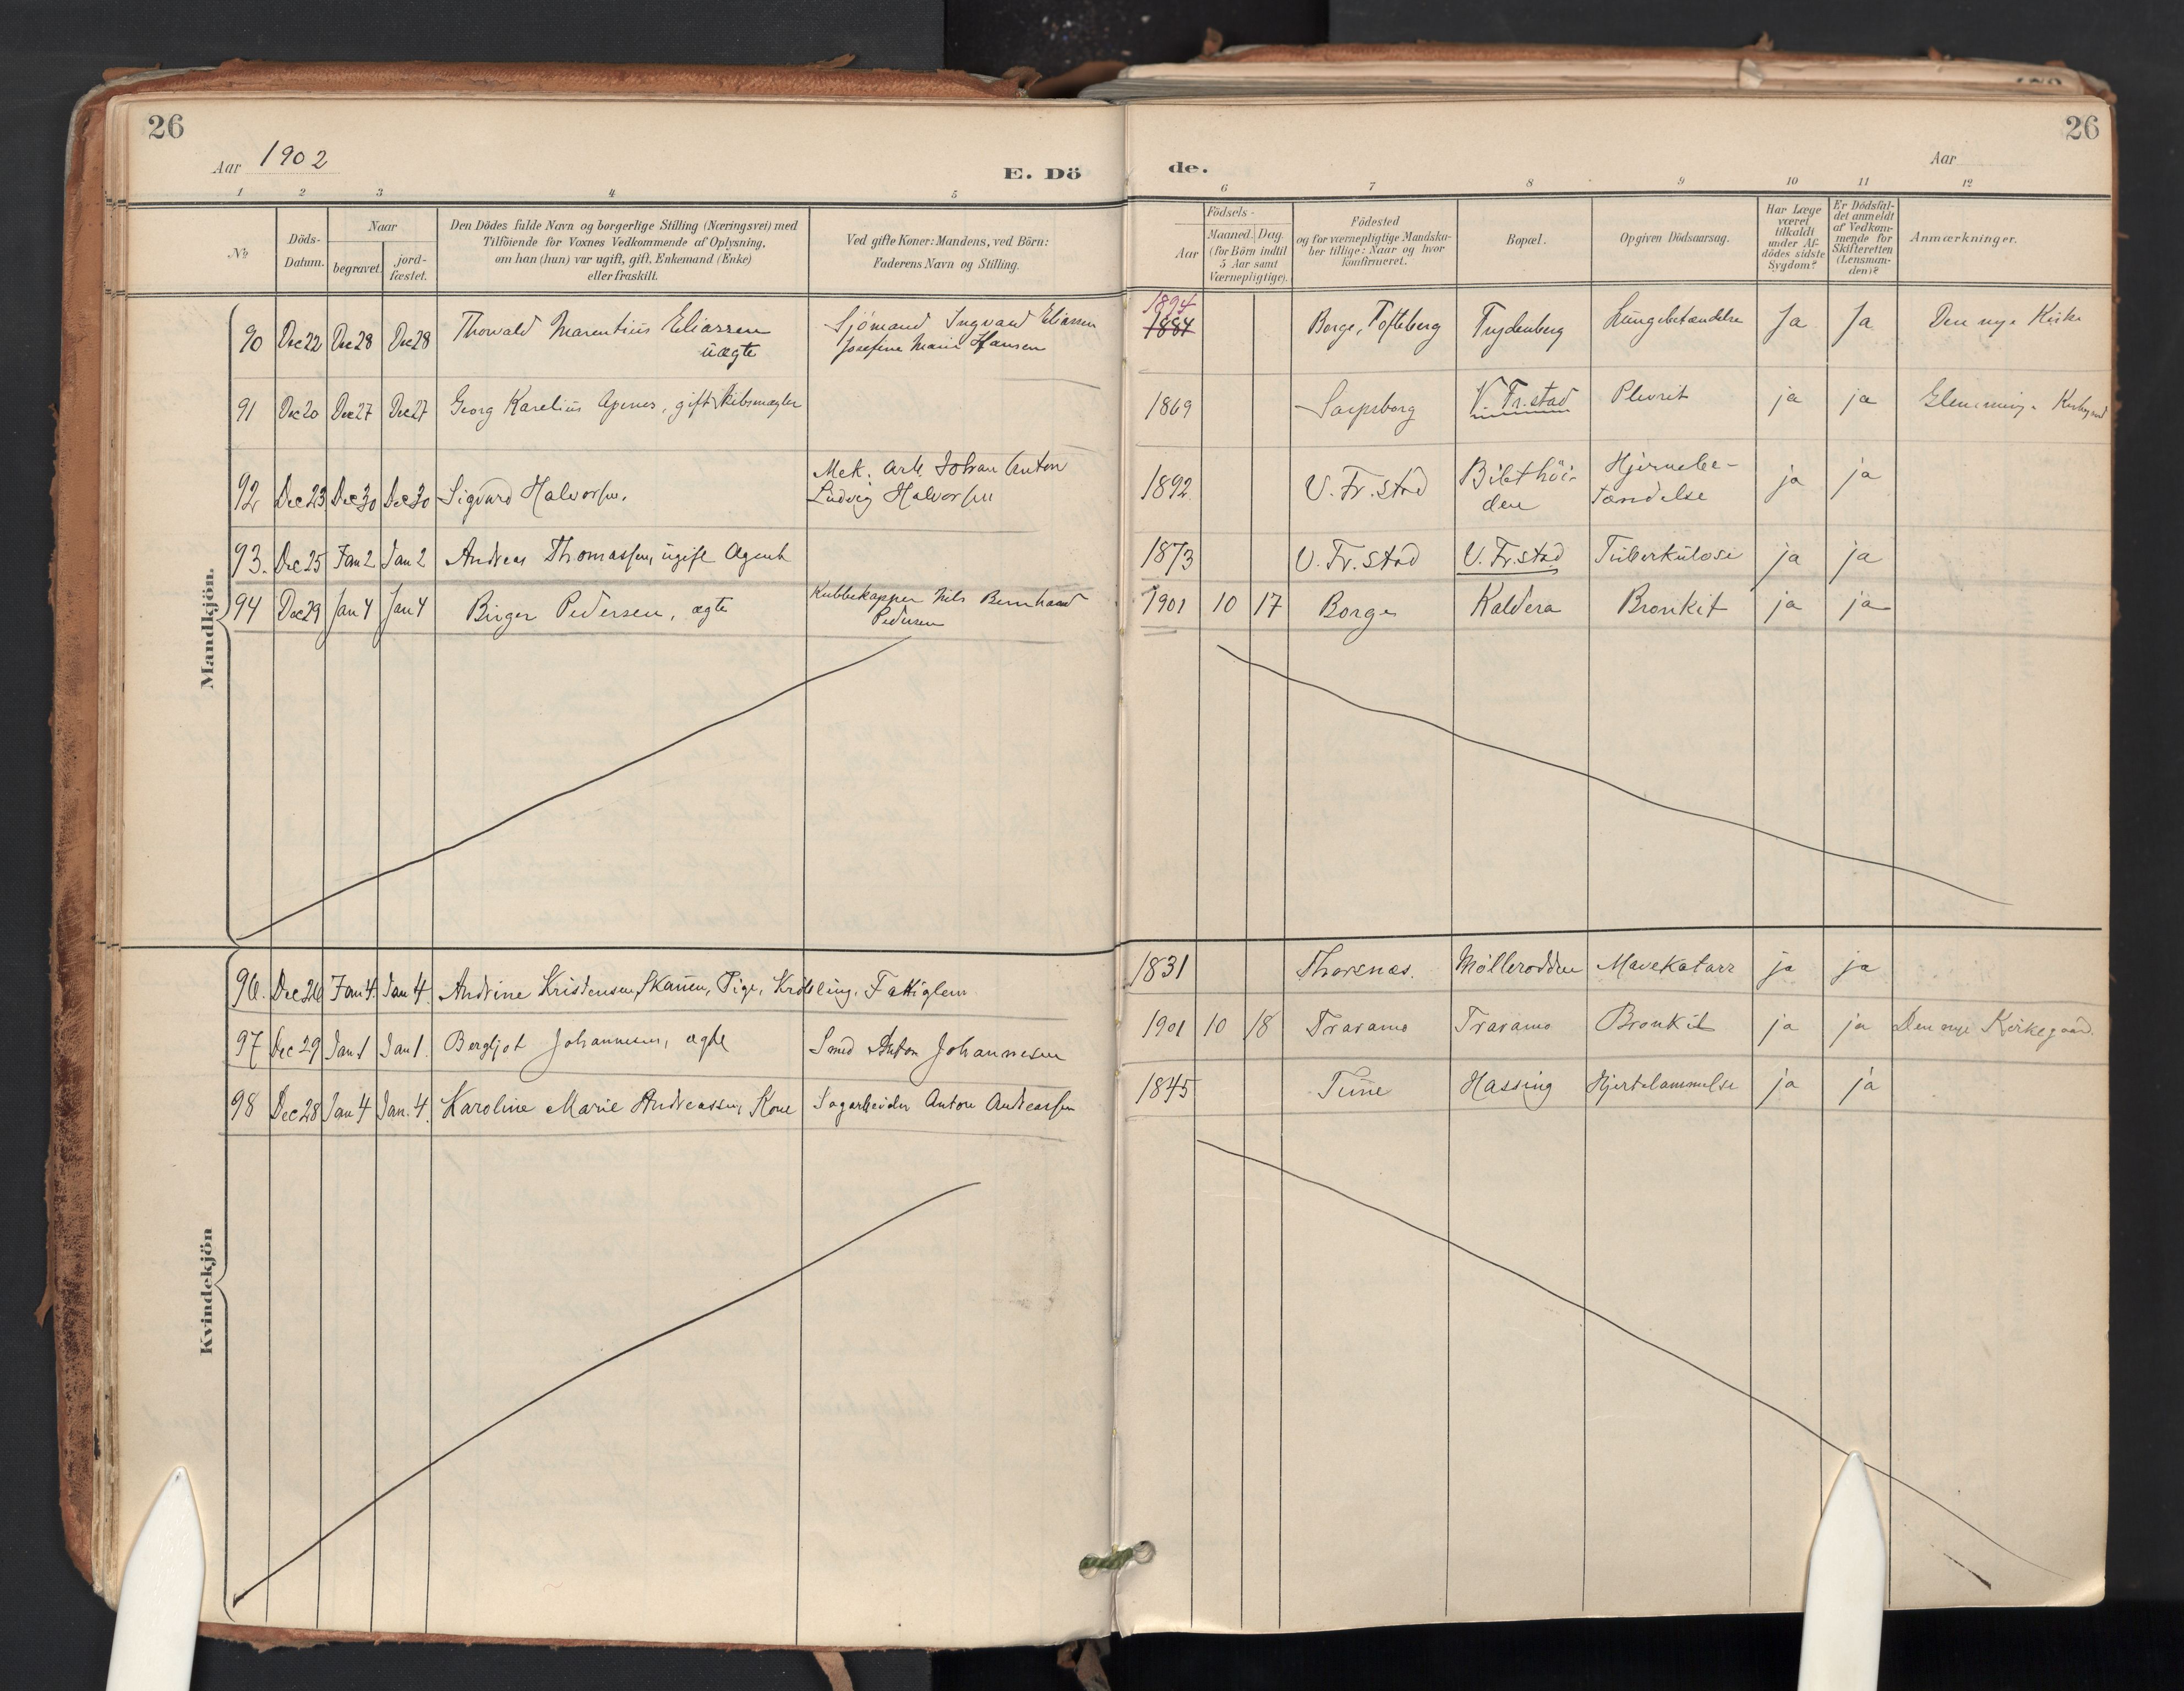 26
26
Aar 1902
E. Dö
de.
Aar
1 2 3 4 5 6 7 8 9 10 11 12
No.
Döds-Datum.
Naar
begravet.
jord-fæstet.
Den Dödes fulde Navn og borgerlige Stilling (Næringsvei) med
Tilföiende for Voxnes Vedkommende af Oplysning,
om han (hun) var ugift, gift, Enkemand (Enke)
eller fraskilt.
Ved gifte Koner: Mandens, ved Börn:
Faderens Navn og Stilling.
Födsels-
Aar
Maaned. Dag.
(for Börn indtil
5 Aar samt
Værnepligtige).
Födested
og for værnepligtige Mandska-
ber tillige: Naar og hvor
konfirmeret.
Bopæl.
Opgiven Dödsaarsag.
Har Læge
været
tilkaldt
under Af-
dödes sidste
Sygdom?
Er Dödsfal-
det anmeldt
af Vedkom-
mende for
Skifteretten
(Lensman-
den)?
Anmærkninger.
Mandkjön.
90 Dec 22 Dec 28 Dec 28 Thorvald Marentius Eliassen uægte Sjömand Ingvard Eliassen Josefine Marie Hansen 1894 1884 Borge, Tofteberg Trydenberg Lungebetændelse Ja Ja Den nye Kirke
91 Dec 20 Dec 27 Dec 27 Georg Karelius Apenes, gift Skibsmægler 1869 Sarpsborg V. Fr.stad Plevrit ja ja Glemminge Kirkegaard
92 Dec 23 Dec 30 Dec 30 Sigvard Halvorsen. Mek. arb. Johan Anton Ludvig Halvorsen 1892 V. Fr.stad Bilethöi-den Hjernebe-tændelse ja ja
93. Dec 25 Jan 2 Jan 2 Andreas Thomassen, ugift Agent 1873 V. Fr.stad V. Fr.stad Tuberkulose ja ja
94 Dec 29 Jan 4 Jan 4 Birger Pedersen, ægte Kubbekapper Nils Bernhard Pedersen 1901 10 17 Borge Kaldera Bronkit ja ja
Kvindekjön
96. Dec 26 Jan 4. Jan 4 Andrine Kristensen, Skanen, Pige, Kröbling, Fattiglem 1831 Thorsnæs. Mölleródden Mavekatarr ja ja
97 Dec 29 Jan 1 Jan 1. Bergljot Johannesen, ægte Smed Anton Johannesen 1901 10 18 Traramo Traramo Bronkit ja ja Den nye Kirkegaard.
98 Dec 28 Jan 4 Jan. 4. Karoline Marie Andreassen, Kone Sagarbeider Anton Andreassen 1845 Tune Hassing Hjertelammelse ja ja